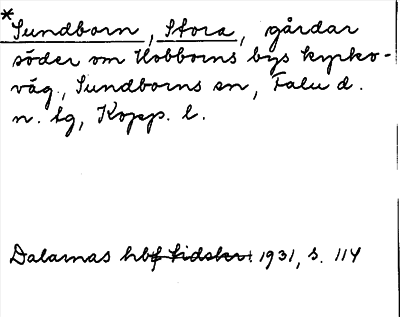 *Sundborn, Stora, gårdar
söder om Hobborns bys kyrko-
väg, Sundborns sn, Falu d.
n. tg, Kopp. l.
Dalarnas hbf tidskr. 1931, s. 114